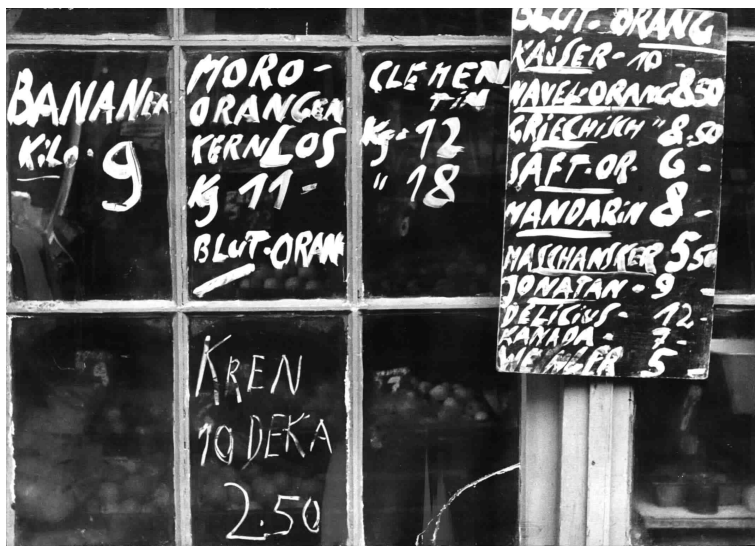 BANANEN
KiLO· 9
MORO-
ORANGEN
KERNLOS
Kg 11-
BLUT-ORAN
CLEMEN
TiN
Kg· 12
" 18
KREN
10 DEKA
2.50
BLUT-ORANG
KAiSER- 10-
NAVEL-ORANG 8 50
GRiECHiSCH " 8.50
SAFT-OR- 6-
MANDARiN 8-
MASCHANSKER 5 50
JONATAN- 9-
DELiCiUS- 12-
KANADA- 7-
5-